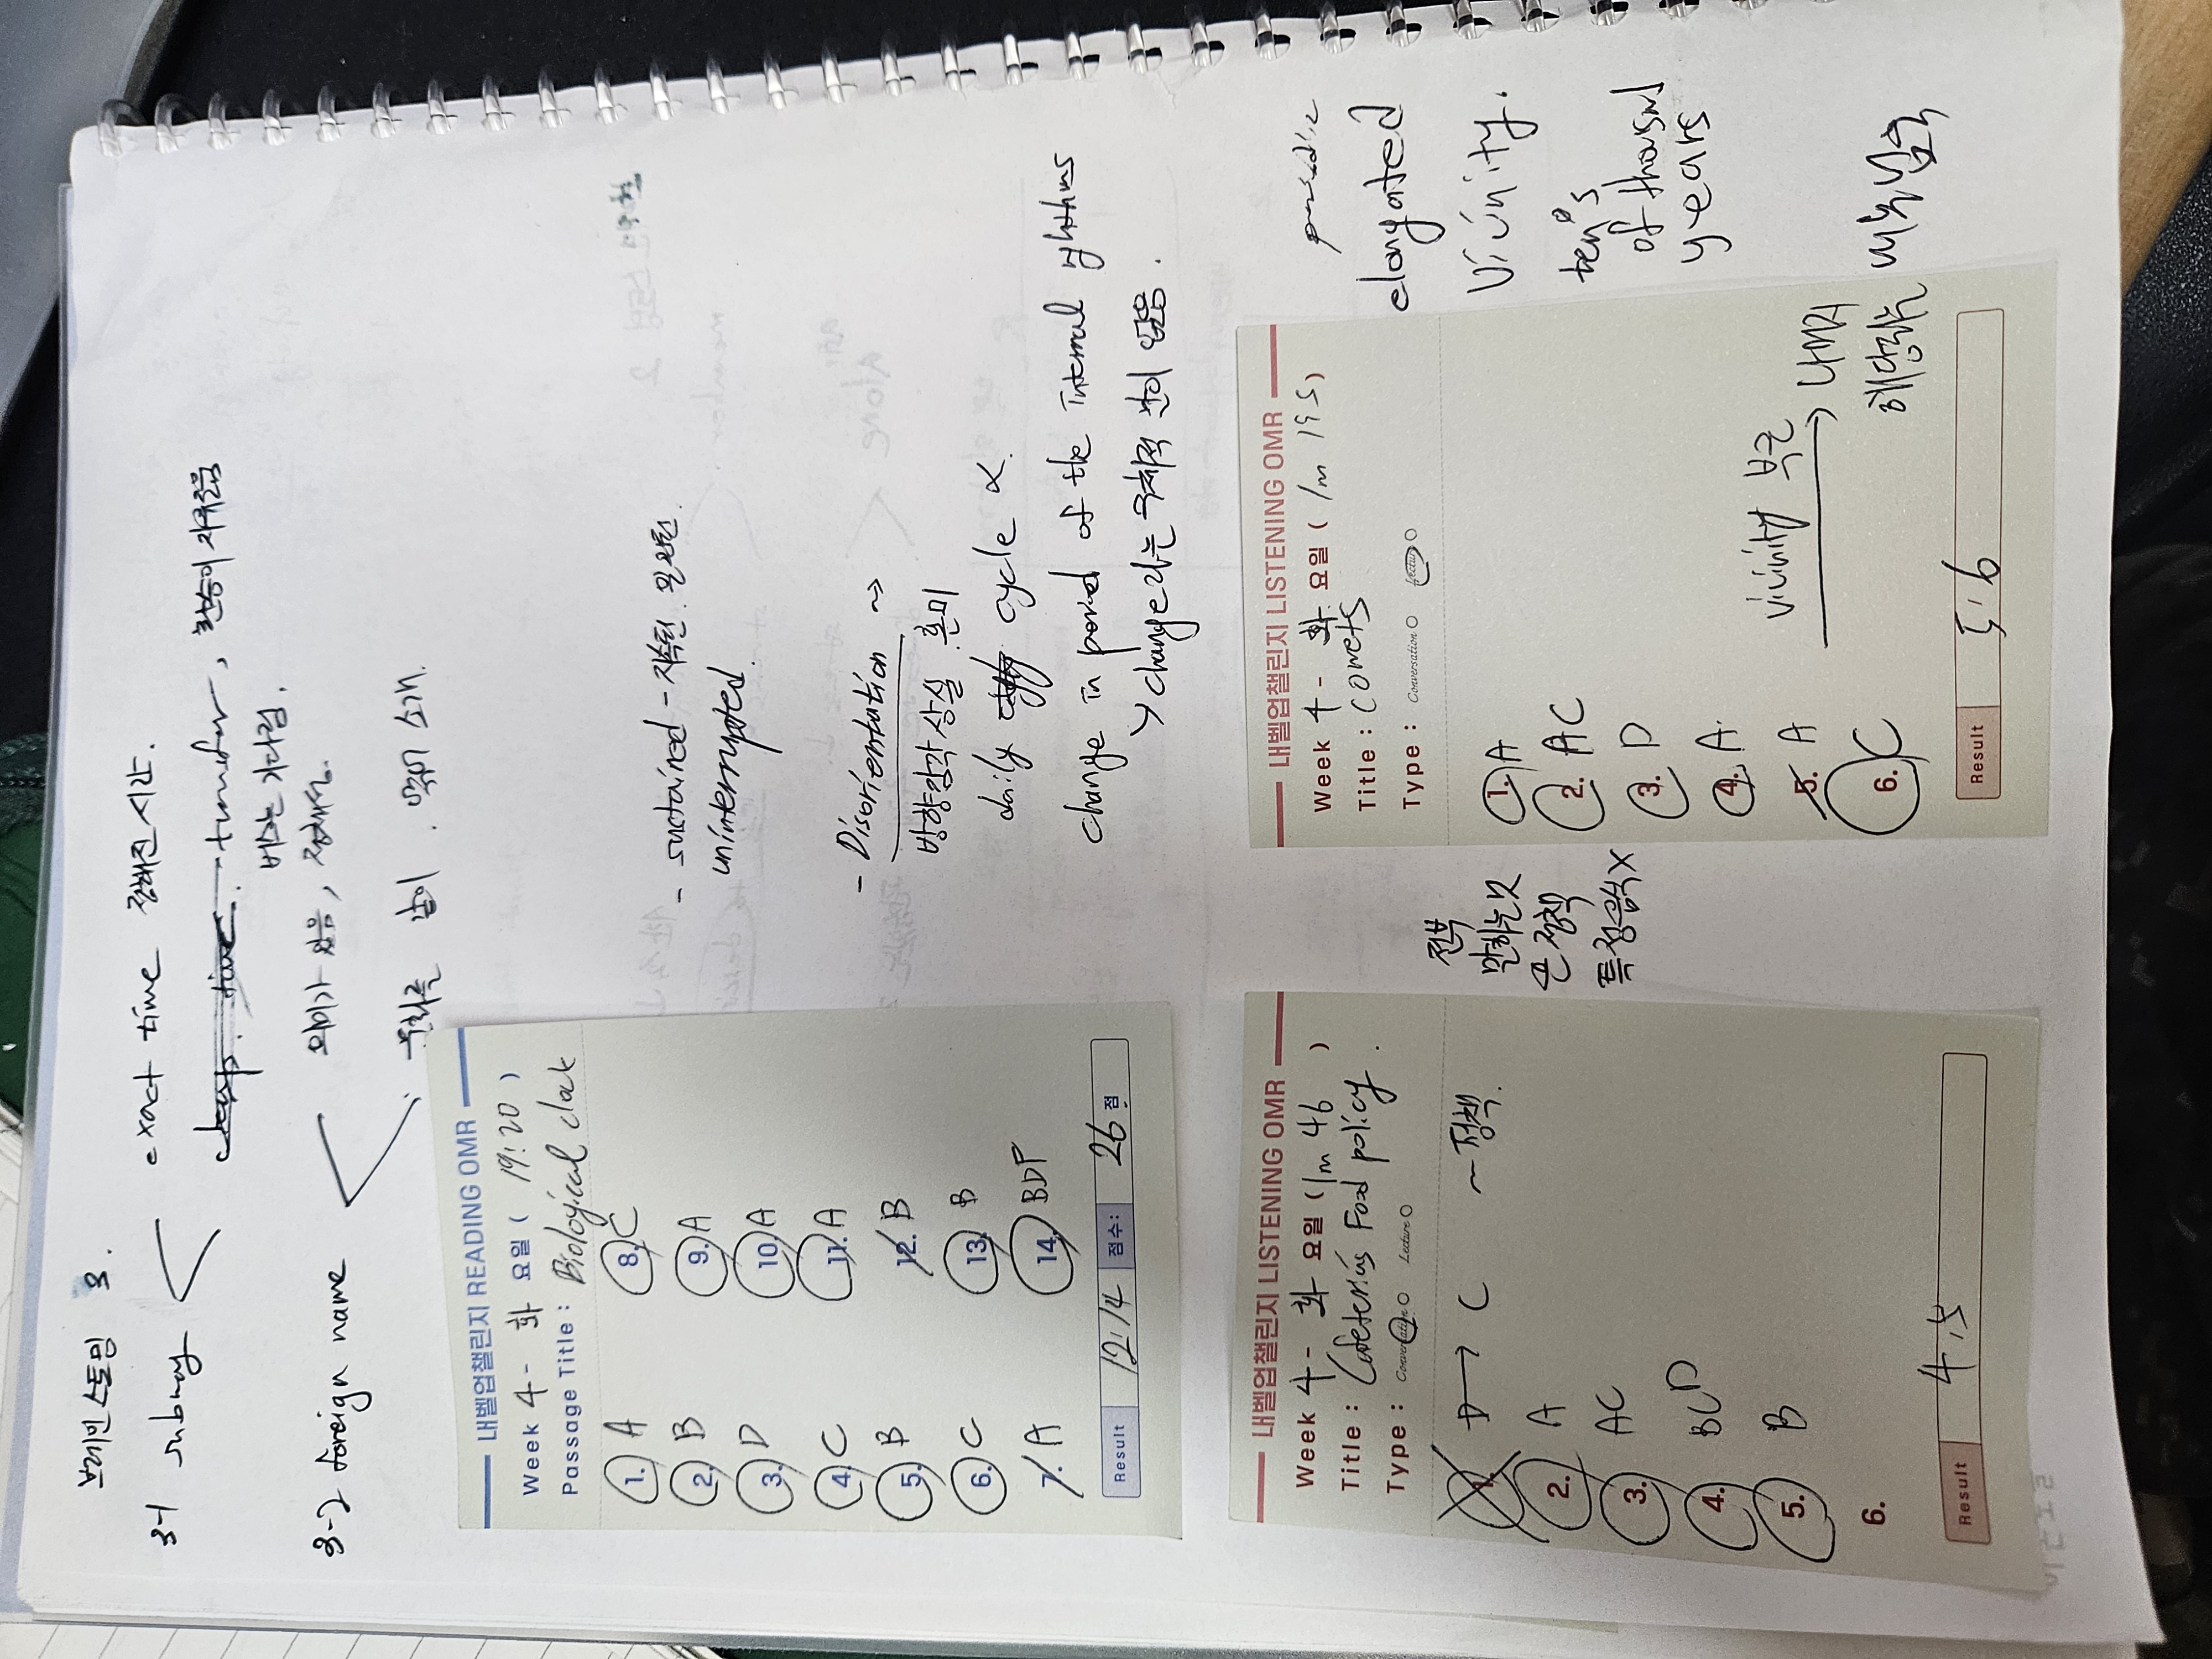 브레인 스토밍 3.
3-1 subway
exact time 정해진 시간.
cheap. time. transfer, 환승이 자유로움
버스는 기다림.
3-2 foreign name
의미가 있음, 정체성.
내벨업챌린지 READING OMR
Week 4 - 화 요일 ( 19:20 )
Passage Title : Biological clock
1. A
2. B
3. D
4. C
5. B
6. C
7. A
8. C
9. A
10. A
11. A
12. B
13. B
14. BDF
Result 12:14 점수: 26 점
- sustained - 지속된.
uninterrupted.
- Disorientation ~>
방향감각 상실. 혼미
daily cycle X.
change in period of the internal rhythms
> change라는 구체적 변화 있음.
내벨업챌린지 LISTENING OMR
Week 4 - 화 요일 ( 1m 46 )
Title : Cafeteria's Food policy.
Type : Conversation O Lecture O
1. D → C ~정책.
2. A
3. AC
4. BCD
5. B
6.
Result 4:5
전부
말하는것
큰 정책
특정음식X
내벨업챌린지 LISTENING OMR
Week 4 - 화 요일 ( 1m 19 5 )
Title : Comets
Type : Conversation O Lecture O
1. A
2. AC
3. D
4. A.
5. A
6. C
Vicinity 부근
나머지
해당하는
Result 5:6
elongated
Vicinity.
ten's
of thousand
years